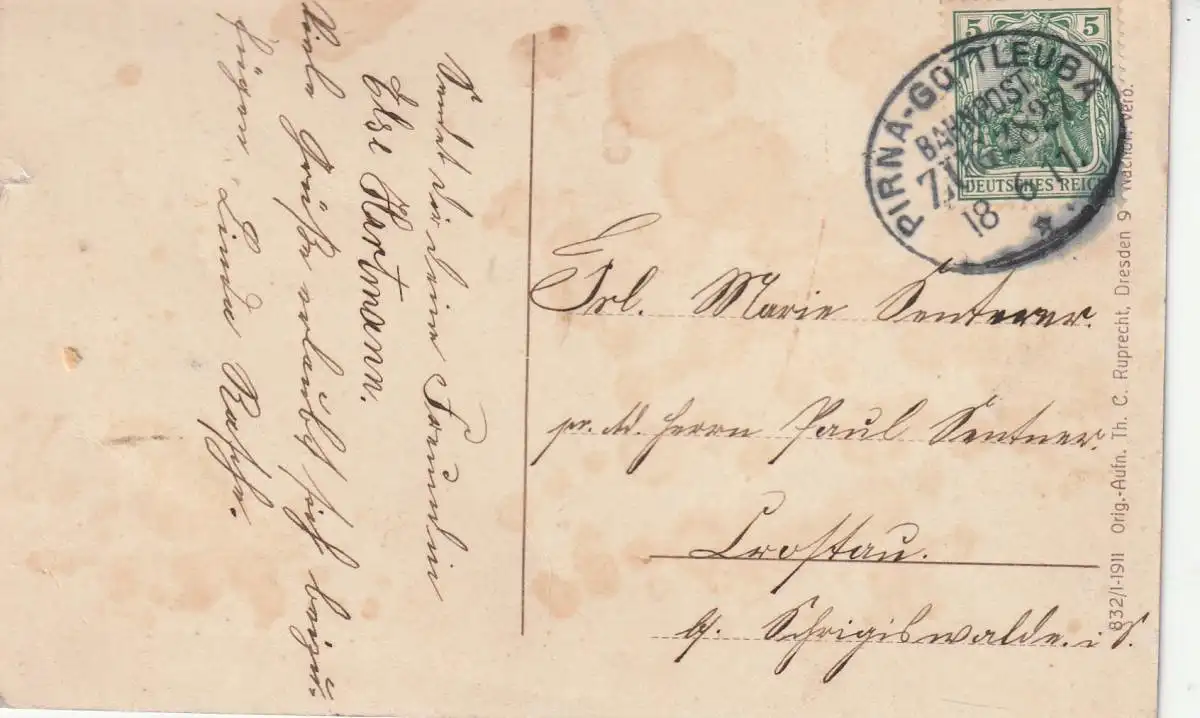 Sendet dir deine Freundin
Else Hartmann.
Viele Grüße erlaubt sich beizu-
fügen Linda
5 5
DEUTSCHES REICH
PIRNA-GOTTLEUBA
BAHNPOST
ZUG
18 6 11
Frl. Marie Sentner.
pr. Ad. Herrn Paul Sentner.
Crostau.
b/. Schrigiswalde. i S.
832/1-1911 Orig.-Aufn. Th. C. Ruprecht, Dresden 9 Nachdr. verb.